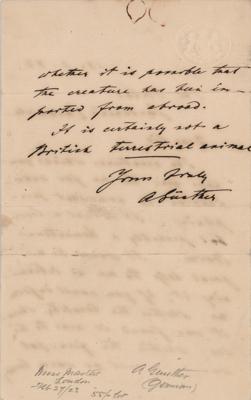 whether it is possible that
the creature has been im-
ported from abroad.
It is certainly not a
British terrestrial animal
Yours truly
A Günther
London
A Günther
(German)